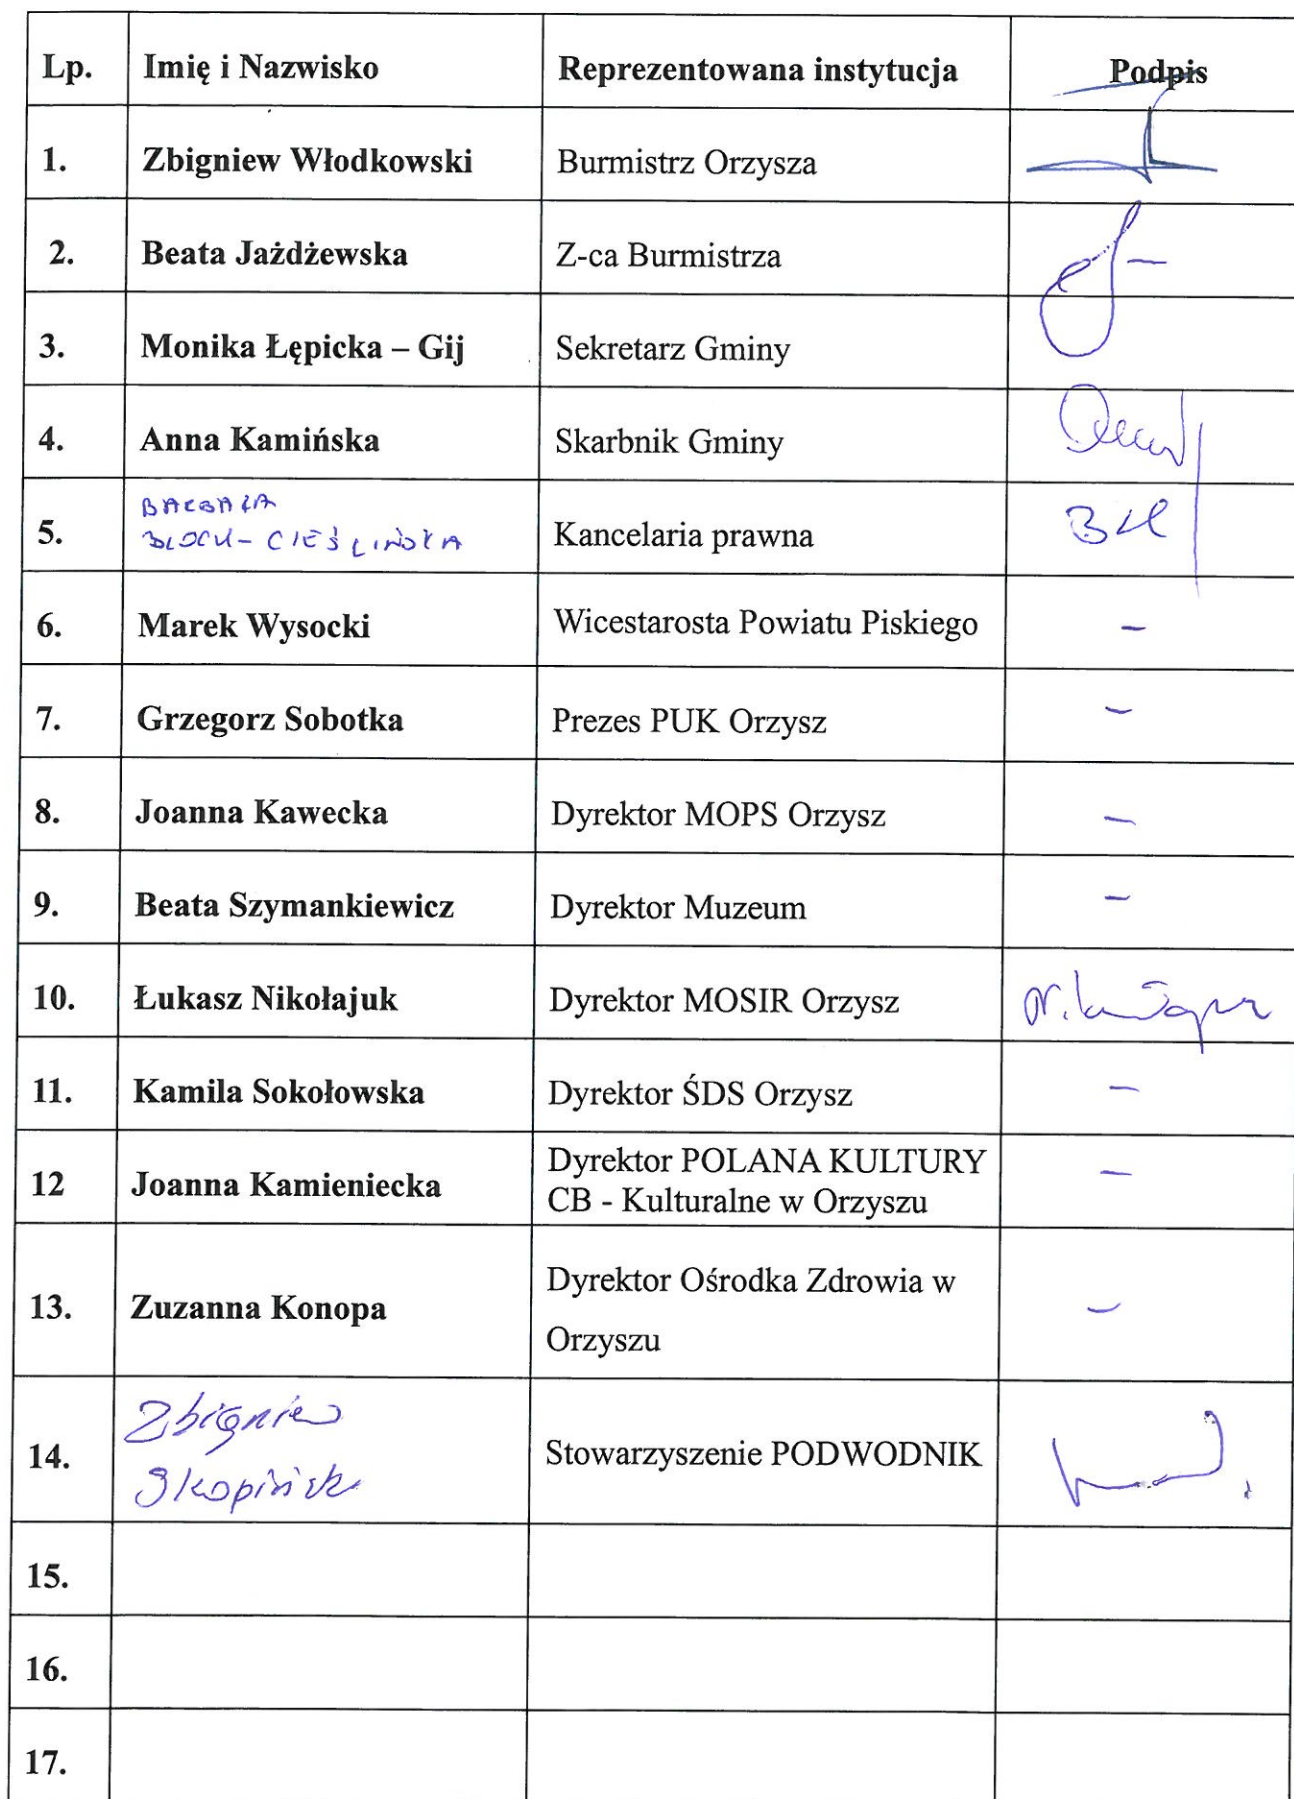 Lp. Imię i Nazwisko Reprezentowana instytucja Podpis
1. Zbigniew Włodkowski Burmistrz Orzysza
2. Beata Jażdżewska Z-ca Burmistrza –
3. Monika Łępicka – Gij Sekretarz Gminy
4. Anna Kamińska Skarbnik Gminy
BARBARA
5. BLOCH-CIEŚLIŃSKA Kancelaria prawna
6. Marek Wysocki Wicestarosta Powiatu Piskiego –
7. Grzegorz Sobotka Prezes PUK Orzysz –
8. Joanna Kawecka Dyrektor MOPS Orzysz –
9. Beata Szymankiewicz Dyrektor Muzeum –
10. Łukasz Nikołajuk Dyrektor MOSIR Orzysz
11. Kamila Sokołowska Dyrektor ŚDS Orzysz –
Dyrektor POLANA KULTURY
12 Joanna Kamieniecka CB - Kulturalne w Orzyszu –
Dyrektor Ośrodka Zdrowia w
13. Zuzanna Konopa –
Orzyszu
Zbigniew
14. Stowarzyszenie PODWODNIK
Skopiński
15.
16.
17.